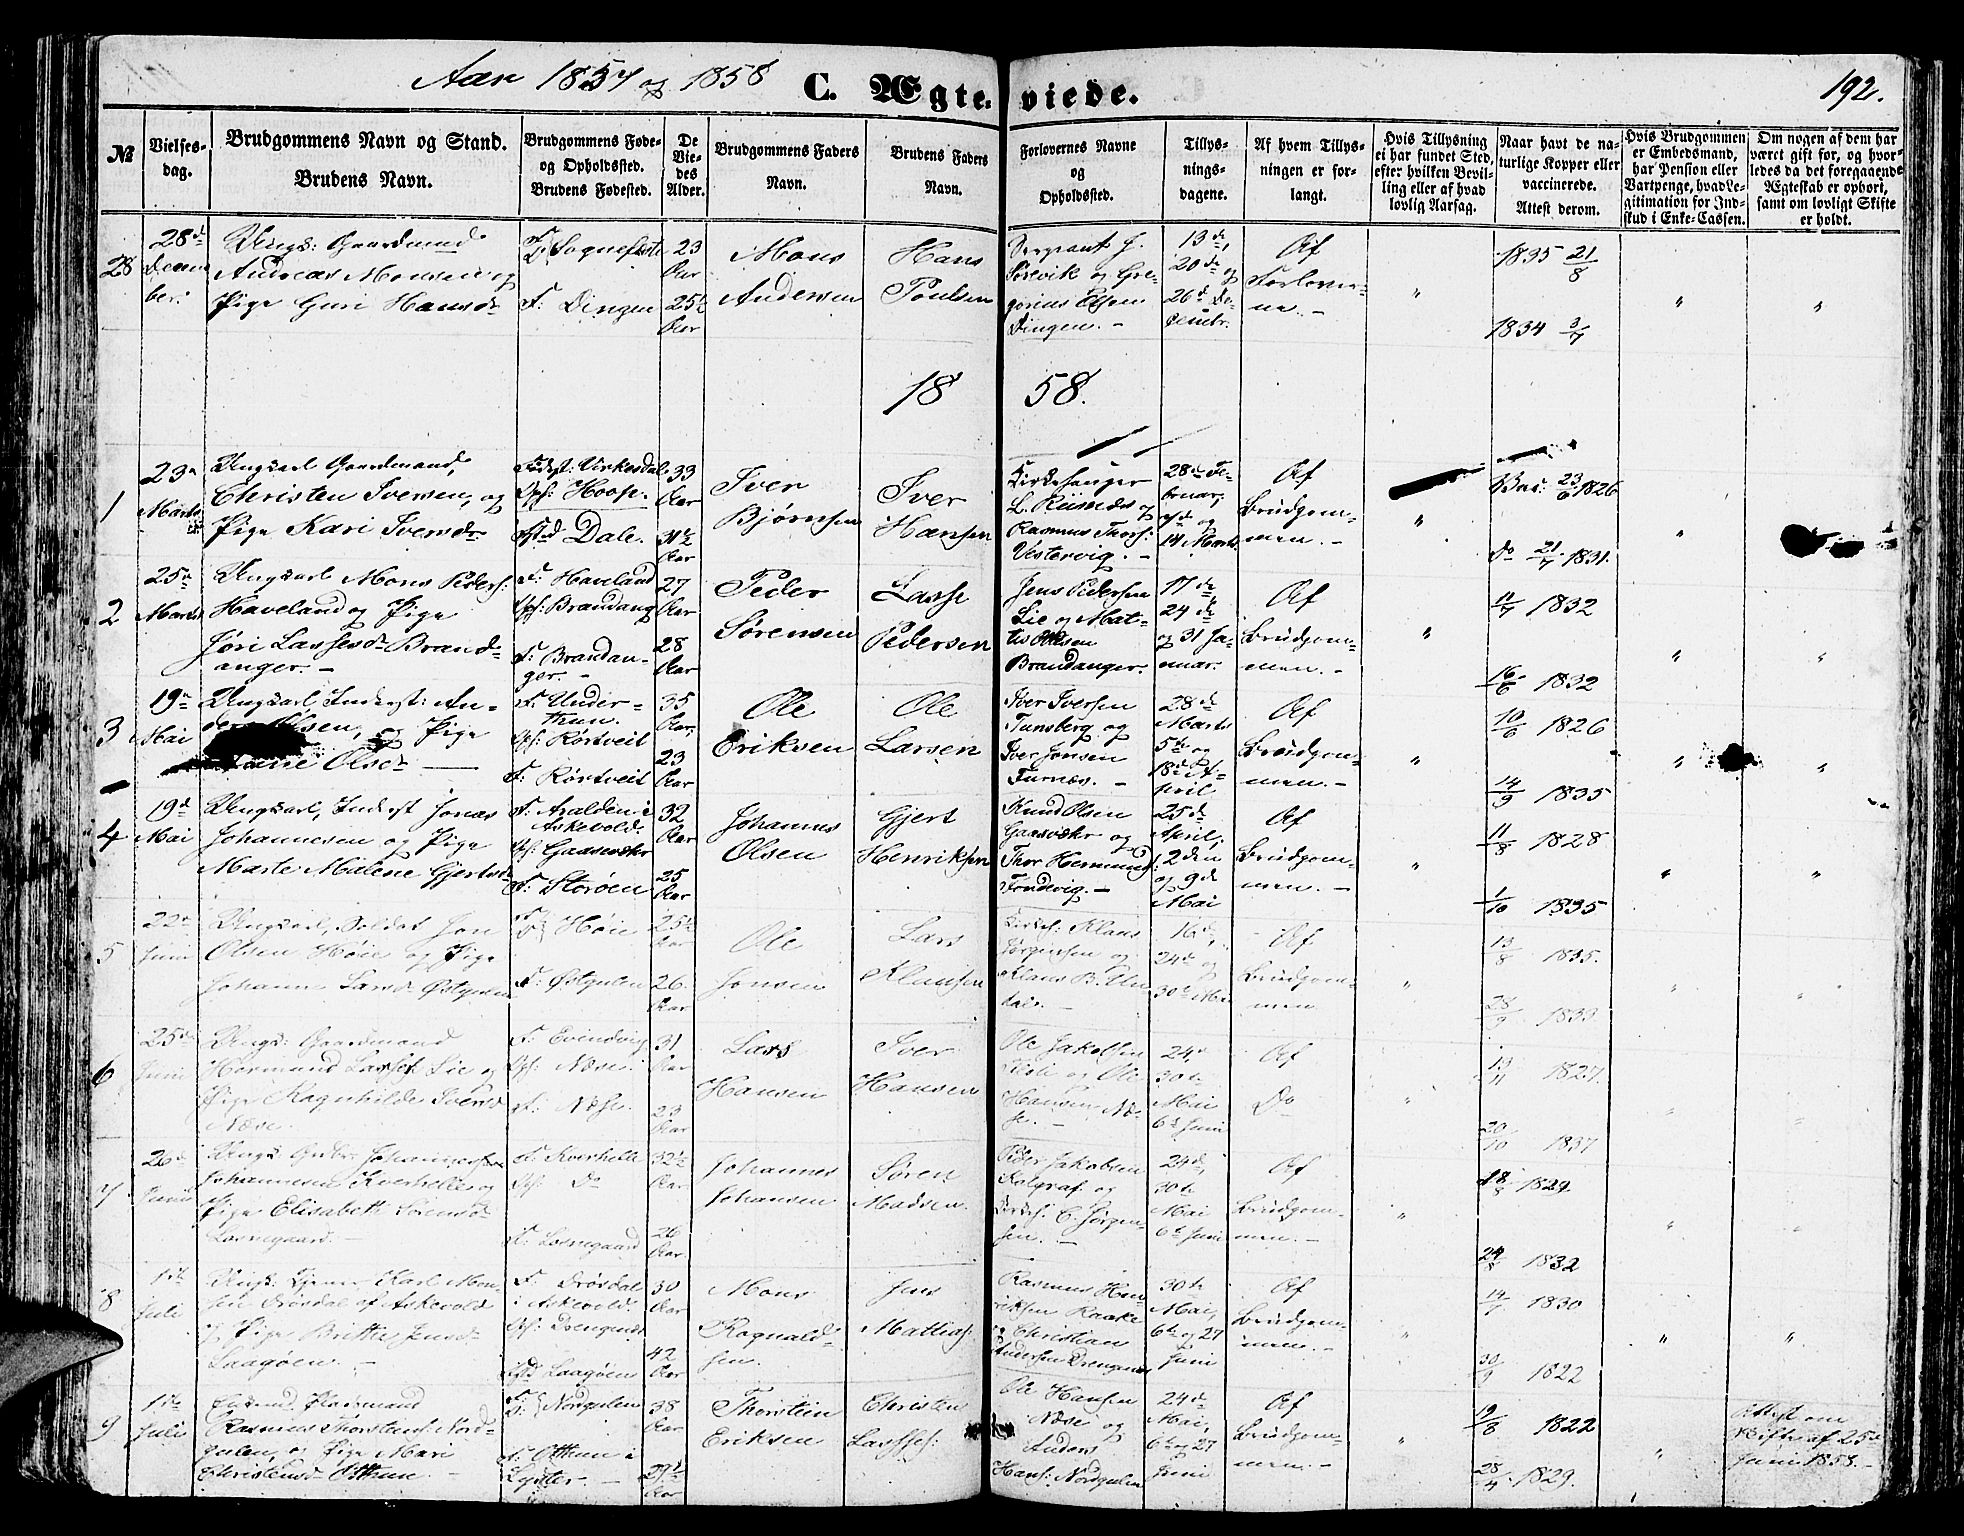 Aar 1857 og 1858
C. Ægteviede.
192.
№
Vielses-
dag.
Brudgommens Navn og Stand.
Brudens Navn.
Brudgommens Føde-
og Opholdssted.
Brudens Fødested.
De
Vie-
des
Alder.
Brudgommens Faders
Navn.
Brudens Faders
Navn.
Forlovernes Navne
og
Opholdssted.
Tillys-
nings-
dagene.
Af hvem Tillys-
ningen er for-
langt.
Hvis Tillysning
ei har fundet Sted,
efter hvilken Bevil-
ling eller af hvad
lovlig Aarsag.
Naar havt de na-
turlige Kopper eller
vaccinerede.
Attest derom.
Hvis Brudgommen
er Embedsmand,
har Pension eller
Vartpenge, hvad Le-
gitimation for Ind-
skud i Enke-Cassen.
Om nogen af dem har
været gift før, og hvor-
ledes da det foregaaende
Ægteskab er ophørt,
samt om lovligt Skifte
er holdt.
28
28de
Decem
ber.
Ungk: Gaardmand
Andreas Monsen og
Pige Guri Hansdr
F. Dingen
23
Aar
25½
Aar
Mons
Andersen
Hans
Poulsen
Sergeant J.
Sørevik og Gre-
gorius Olsen
Dingen. -
13de,
20de og
26de De-
cembr.
Af
Forlover-
ne. -
"
1835 21/8
1834 3/7
"
"
18 58.
1
23de
Marts
Ungkarl Gaardmand,
Christen Iversen, og
Pige Kari Iversdr
Fødest: Virkesdal
Oph: Hoop.
Fsted Dale.
33
Aar
31½
Aar
Iver
Bjørnsen
Iver
Hansen
Kirkesanger
L. Riisnes og
Rasmus Thors:
Vestervig. -
28de Fe-
bruar,
7de og
14 Marts
Af
Brudgom-
men. -
"
Vac: 23/6 1826
Do 21/7 1831.
"
2
25de
Marts
Ungkarl Mons Peders:
Haveland og Pige
Jøri Lassesdr Brand-
anger. -
F. Haveland
Oph: Brandang
F. Brandan-
ger. -
27
Aar
28
Aar
Peder
Sørensen
Lasse
Pedersen
Jens Pedersen
Lie og Mat-
tis Olsen
Brandanger.
17de
24de
og 31 Ja-
nuar.
Af
Brudgom-
men. -
"
11/7 1832
16/6 1832
"
"
3
19de
Mai
Ungkarl, Inderst: An-
ders Olsen, og Pige
Olsdr
F. Under-
thun.
Oph: Kørtveit
F. Kørtveit
35
Aar,
23
Aar
Ole
Eriksen
Ole
Larsen
Iver Iversen
Tunsberg og
Iver Jonsen
Furnæs. -
28de
Marts
5te og
18de A-
pril
Af
Brudgom-
men. -
"
10/6 1826
14/9 1835
"
"
4
19de
Mai
Ungkarl, Inderst Jonas
Johannesen og Pige
Marte Malene Gjertsdr
F. Aralden i
Askevold.
Oph: Gaasevær
F. Storøen
32
Aar
25
Aar
Johannes
Olsen
Gjert
Henriksen
Knud Olsen
Gaasvær og
Thor Hermunds:
Tondevig. -
25de
April,
2den
og 9de
Mai
Af
Brudgom-
men. -
"
11/8 1828
1/10 1835
"
"
5
22de
Juni
Ungkarl, Soldat Jon
Olsen Høie og Pige
Johanne Larsdr Østgulen
Høie
F. Østgulen
25½
Aar
26
Aar
Ole
Jonsen
Lars
Klausen
Kirkes: Klaus
Jørgensen og
Klaus B. Un-
dal. -
16de,
24de og
30te Mai
Af
Brudgom-
men
"
13/8 1835.
28/9 1833
"
"
6
25de
Juni
Ungk: Gaardmand
Hermund Larsen Lie og
Pige Ragnhilde Iversdr
Næse.
F. Evendvig
Oph: Næse.
F. Næse.
31
Aar
23
Aar
Lars
Hansen
Iver
Hansen
Ole Jakobsen
og Ole
Hansen Næ-
se. -
24de
30te
Mai
6te Juni
Af
Do
"
13/11 1827.
20/10 1837
"
"
7
26de
Juni
Ungk: Johannes
Johannesen Kverhelle og
Pige Elisabeth Sørensdr
Losnegaard. -
F. Kverhelle
Oph: Do
F. Losnegaard
32½
Aar
26
Aar
Johannes
Johansen
Søren
Madsen.
Peder Jakobsen
Kolgraf og
Kirkes: C. Jørgen-
sen. -
24de,
30te
Mai
6te Juni
Af
Brudgom-
men. -
"
18/8 1829
24/8 1832
"
"
8
1ste
Juli
Ungk: Tjener Karl Mon-
sen Drøsdal af Askevold
og Pige Brithe Jensdr
Laagøen. -
F. Drøsdal
i Askevold.
Oph: Drengenes
Fsted Laagøen
30
Aar
42
Aar
Mons
Ragnald-
sen.
Jens
Mattias:
Rasmus Hen-
riksen Raake
og Christian
Andersen Drengenes
30te
Mai,
6te og 27
Juni
Af
Brudgom-
men. -
"
14/7 1830
30/9 1822
"
"
9
1ste
Juli
Enkemd Pladsmand
Rasmus Thorsteins: Nord-
gulen, og Pige Mari
Christensdr Otthun. -
Nordgulen
F. Otthun i
Lyster. -
38
Aar
29½
Aar
Thorstein
Eriksen
Christen
Lasses:
Ole Hansen
Næse og
Anders
Hans: Nordgulen
24de
Mai,
6te og 27
Juni
Af
Brudgom-
men. -
"
19/8 1822
28/4 1829.
"
Attest om
Skifte af 25de
Juni 1858. -